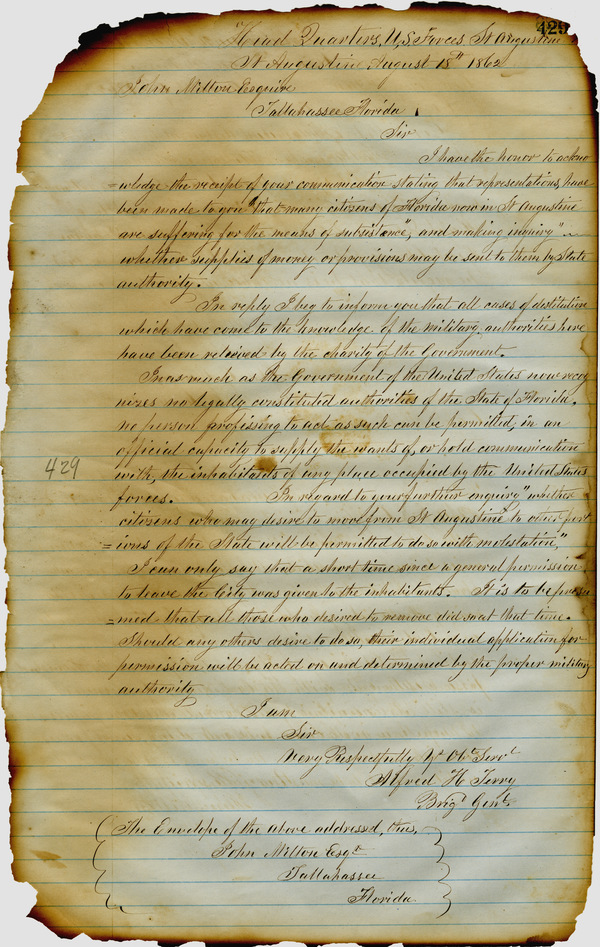 429
"Head Quarters, U.S. Forces, St Augustine
St Augustine August 18th 1862
John Milton Esquire
Tallahassee Florida
Sir
I have the honor to ackno
=wledge the receipt of your communication stating that representations have
been made to you "that many citizens of Florida now in St Augustine
are suffering for the means of subsistance", and making inquiry "
whether supplies of money or provisions may be sent to them by State
authority.
In reply I beg to inform you that all cases of destitution
which have come to the knowledge of the military authorities here
have been relieved by the charity of the Government.
Inasmuch as the Government of the United States now recog
nizes no legally constituted authorities of the State of Florida.
no person professing to act as such can be permitted, in an
official capacity to supply the wants of, or hold communication
with, the inhabitants of any place occupied by the United States
429
forces. In regard to your further enquiry "whether
citizens who may desire to move from St Augustine to other port
=ions of the State will be permitted to do so with molestation,"
I can only say that a short time since a general permission
to leave the City was given to the inhabitants. It is to be presu
=med that all those who desired to remove did so at that time.
Should any others desire to do so, their individual application for
permission will be acted on and determined by the proper military
authority
I am
Sir
Very Respectfully Yr Obt Servt
Alfred H Terry
Brigr Genl.
(The Envelope of the above addressed, thus,
John Milton Esqr
Tallahassee
Florida